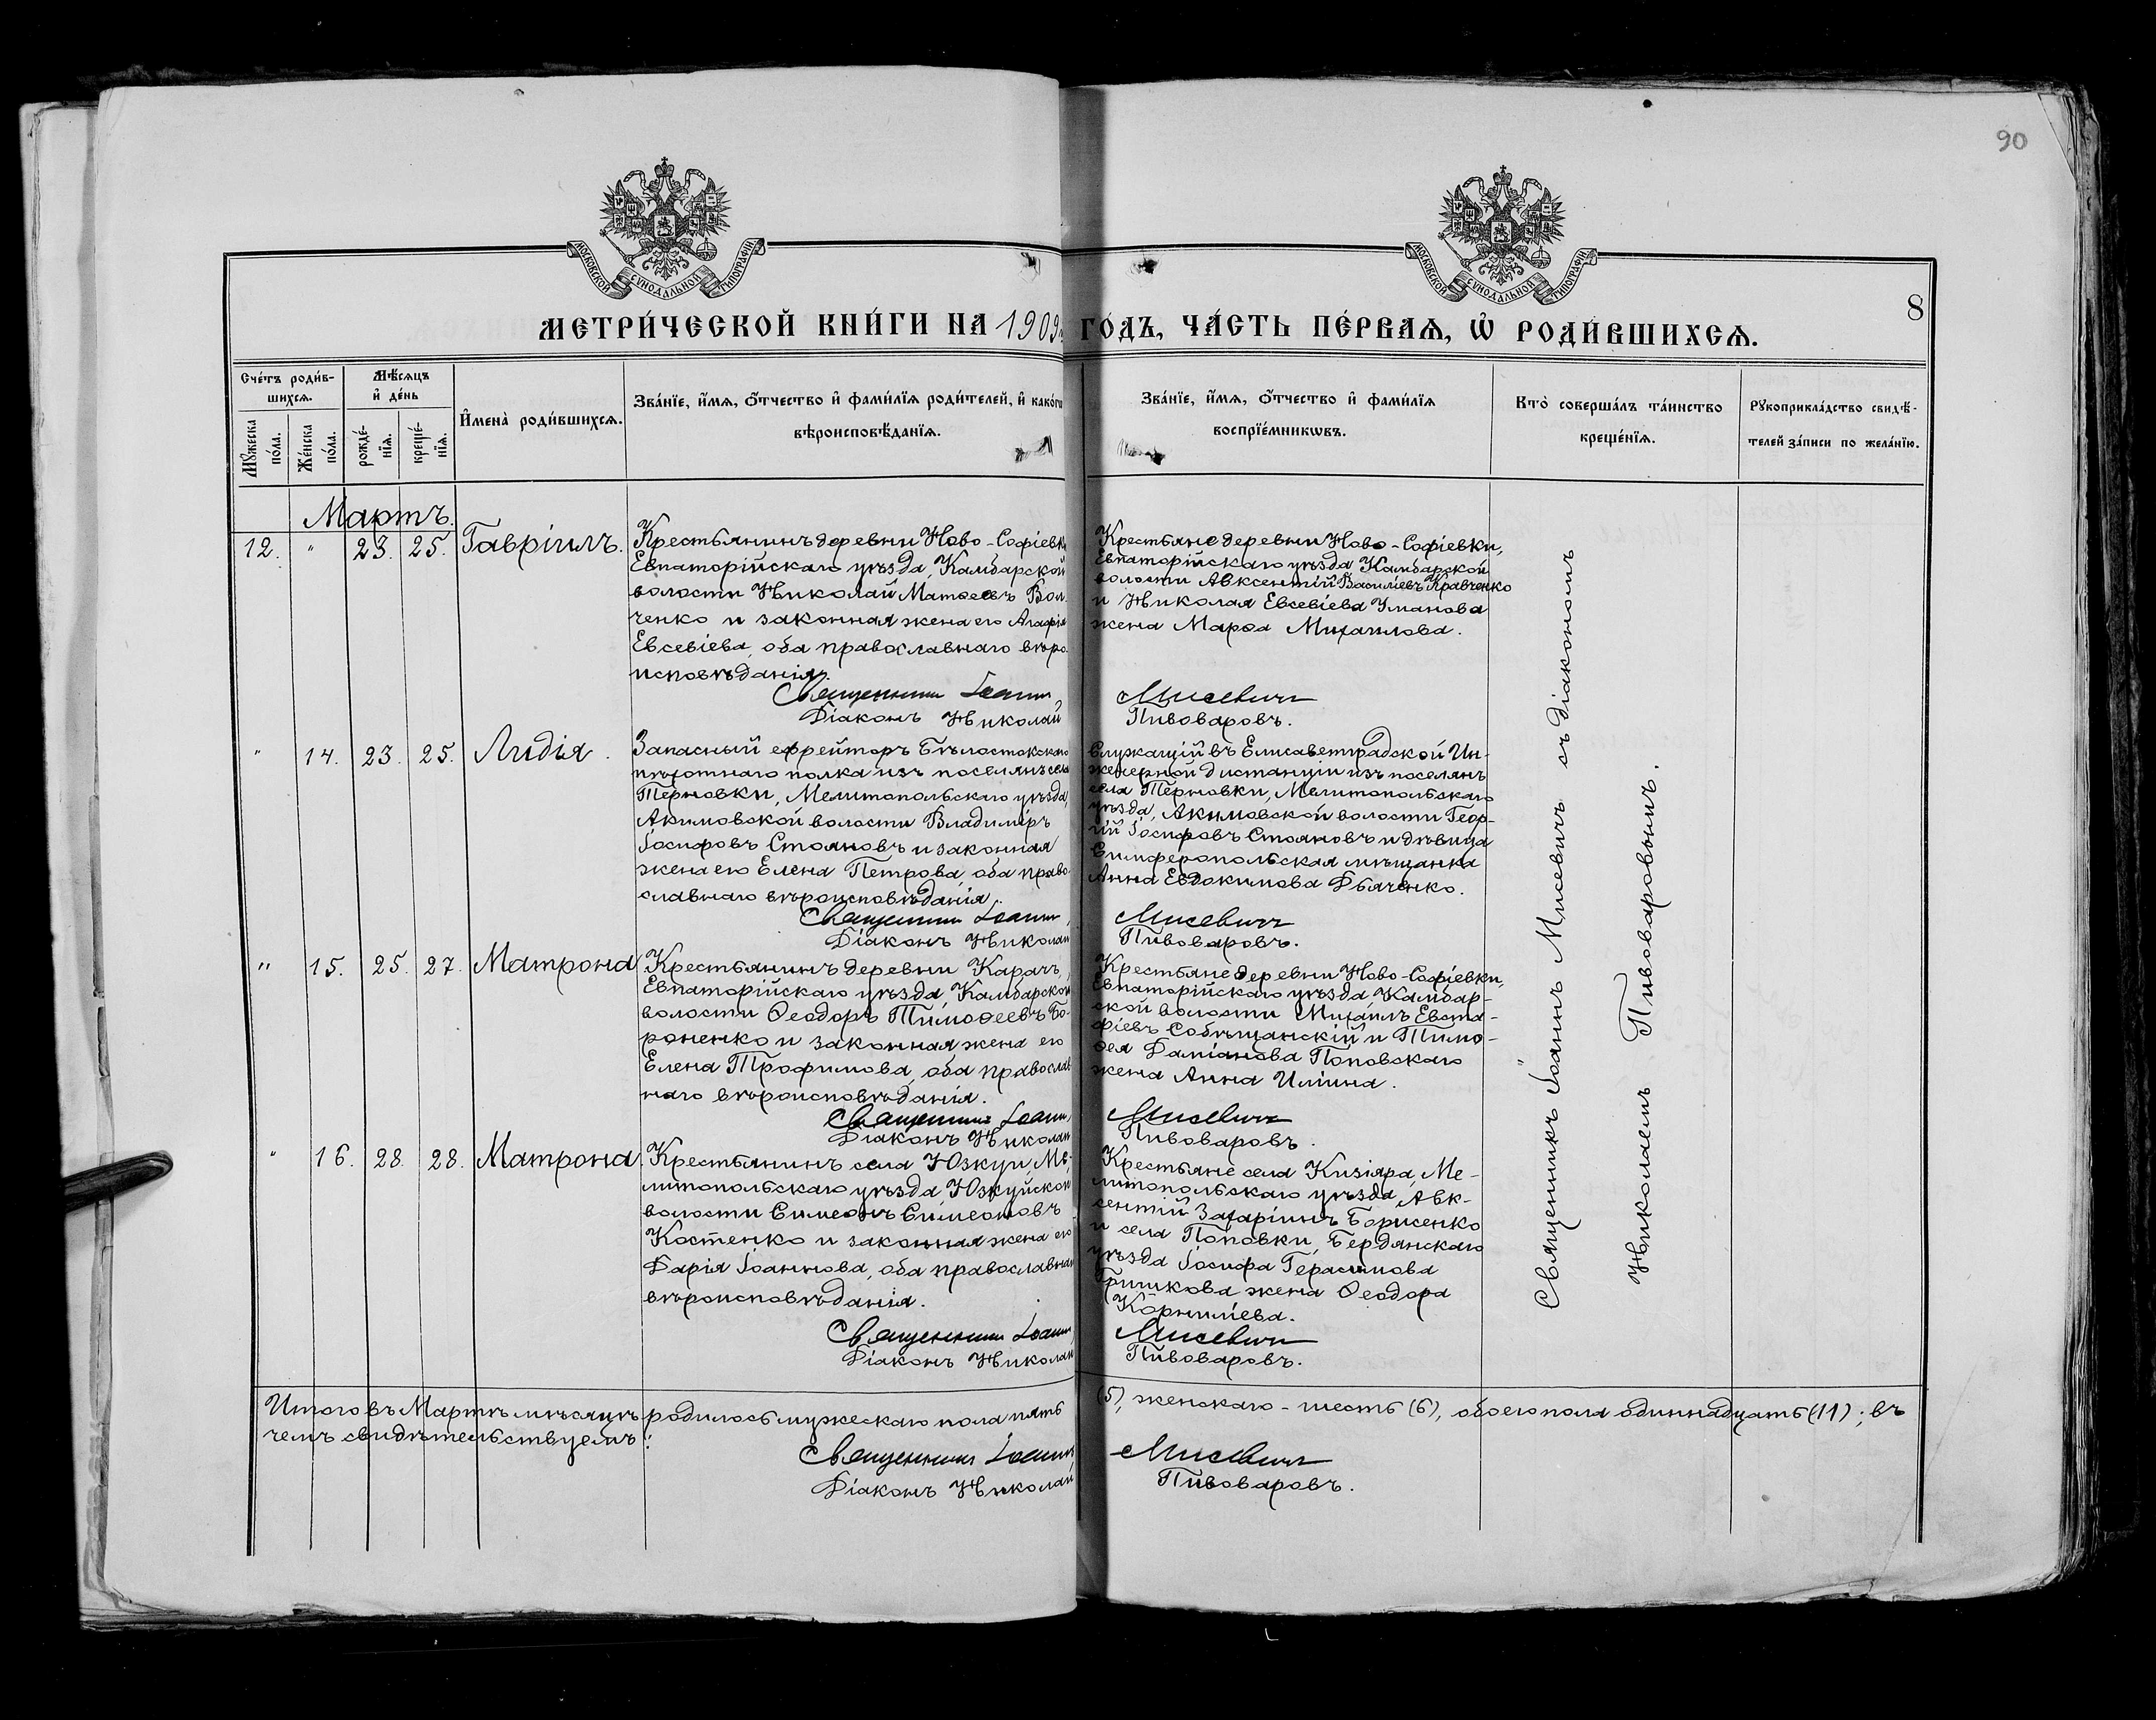 90
МОСКОВСКОЙ СѴНОДАЛЬНОЙ ТИПОГРАФІИ
МОСКОВСКОЙ СѴНОДАЛЬНОЙ ТИПОГРАФІИ
8
МЕТРИ́ЧЕСКОЙ КНИ́ГИ НА 1909 ГО́ДЪ, ЧА́СТЬ ПЕ́РВАѦ, Ѡ҆ РОДИ́ВШИХСѦ.
Сче́тъ роди́в-
шихсѧ.
Мꙋжеска по́ла.
Же́нска по́ла.
Мѣ́сѧцъ
и҆ де́нь
рожде́-
нїѧ.
креще́-
нїѧ.
И҆мена̀ роди́вшихсѧ.
Зва́нїе, и҆́мѧ, ѻ҆́тчество и҆ фами́лїѧ роди́телей, и҆ како́гѡ
вѣроисповѣ́данїѧ.
Зва́нїе, и҆́мѧ, ѻ҆́тчество и҆ фами́лїѧ
воспрїе́мникѡвъ.
Кто̀ соверша́лъ та́инство
креще́нїѧ.
Рꙋкоприкла́дство свидѣ́-
телей за́писи по жела́нїю.
Мартъ.
12. " 23. 25. Гавріилъ.
Крестьянинъ деревни Ново-Софіевки
Евпаторійскаго уѣзда, Камбарской
волости Николай Матѳеевъ Вол-
ченко и законная жена его Агафія
Евсевіева, оба православнаго вѣро-
исповѣданія.
Священникъ Іоаннъ
Діаконъ Николай
Крестьяне деревни Ново-Софіевки,
Евпаторійскаго уѣзда Камбарской
волости Авксентій Василіевъ Кравченко
и Николая Евсевіева Уманова
жена Марѳа Михаилова.
Мисевичъ
Пивоваровъ.
" 14. 23. 25. Лидія.
Запасный ефрейторъ Бѣлостокскаго
пѣхотнаго полка изъ поселянъ села
Терновки, Мелитопольскаго уѣзда,
Акимовской волости Владиміръ
Іосифовъ Стояновъ и законная
жена его Елена Петрова, оба право-
славнаго вѣроисповѣданія.
Священникъ Іоаннъ
Діаконъ Николай
Служащій въ Елисаветградской Ин-
женерной дистанціи изъ поселянъ
села Терновки, Мелитопольскаго
уѣзда, Акимовской волости Геор-
гій Іосифовъ Стояновъ и дѣвица
Симферопольская мѣщанка
Анна Евдокимова Дьяченко.
Мисевичъ
Пивоваровъ.
" 15. 25. 27. Матрона
Крестьянинъ деревни Карачъ,
Евпаторійскаго уѣзда, Камбарской
волости Ѳеодоръ Тимоѳеевъ Бо-
роненко и законная жена его
Елена Трофимова, оба православ-
наго вѣроисповѣданія.
Священникъ Іоаннъ
Діаконъ Николай
Крестьяне деревни Ново-Софіевки,
Евпаторійскаго уѣзда, Камбар-
ской волости Михаилъ Евста-
фіевъ Собѣщанскій и Тимо-
ѳея Даміанова Поповскаго
жена Анна Иліина.
Мисевичъ
Пивоваровъ.
" 16. 28. 28. Матрона.
Крестьянинъ села Юзкуи, Ме-
литопольскаго уѣзда Юзкуйской
волости Симеонъ Симеоновъ
Костенко и законная жена его
Дарія Іоаннова, оба православнаго
вѣроисповѣданія.
Священникъ Іоаннъ
Діаконъ Николай
Крестьяне села Кизіяра, Ме-
литопольскаго уѣзда, Авк-
сентій Захаріинъ Борисенко
и села Поповки, Бердянскаго
уѣзда Іосифа Герасимова
Гришкова жена Ѳеодора
Корниліева.
Мисевичъ
Пивоваровъ.
Священникъ Іоаннъ Мисевичъ съ діакономъ
Николаемъ Пивоваровымъ.
Итого въ Мартѣ мѣсяцѣ родилось мужескаго пола пять (5), женскаго - шесть (6), обоего пола одиннадцать (11); въ
чемъ свидѣтельствуемъ:
Священникъ Іоаннъ Мисевичъ
Діаконъ Николай Пивоваровъ.